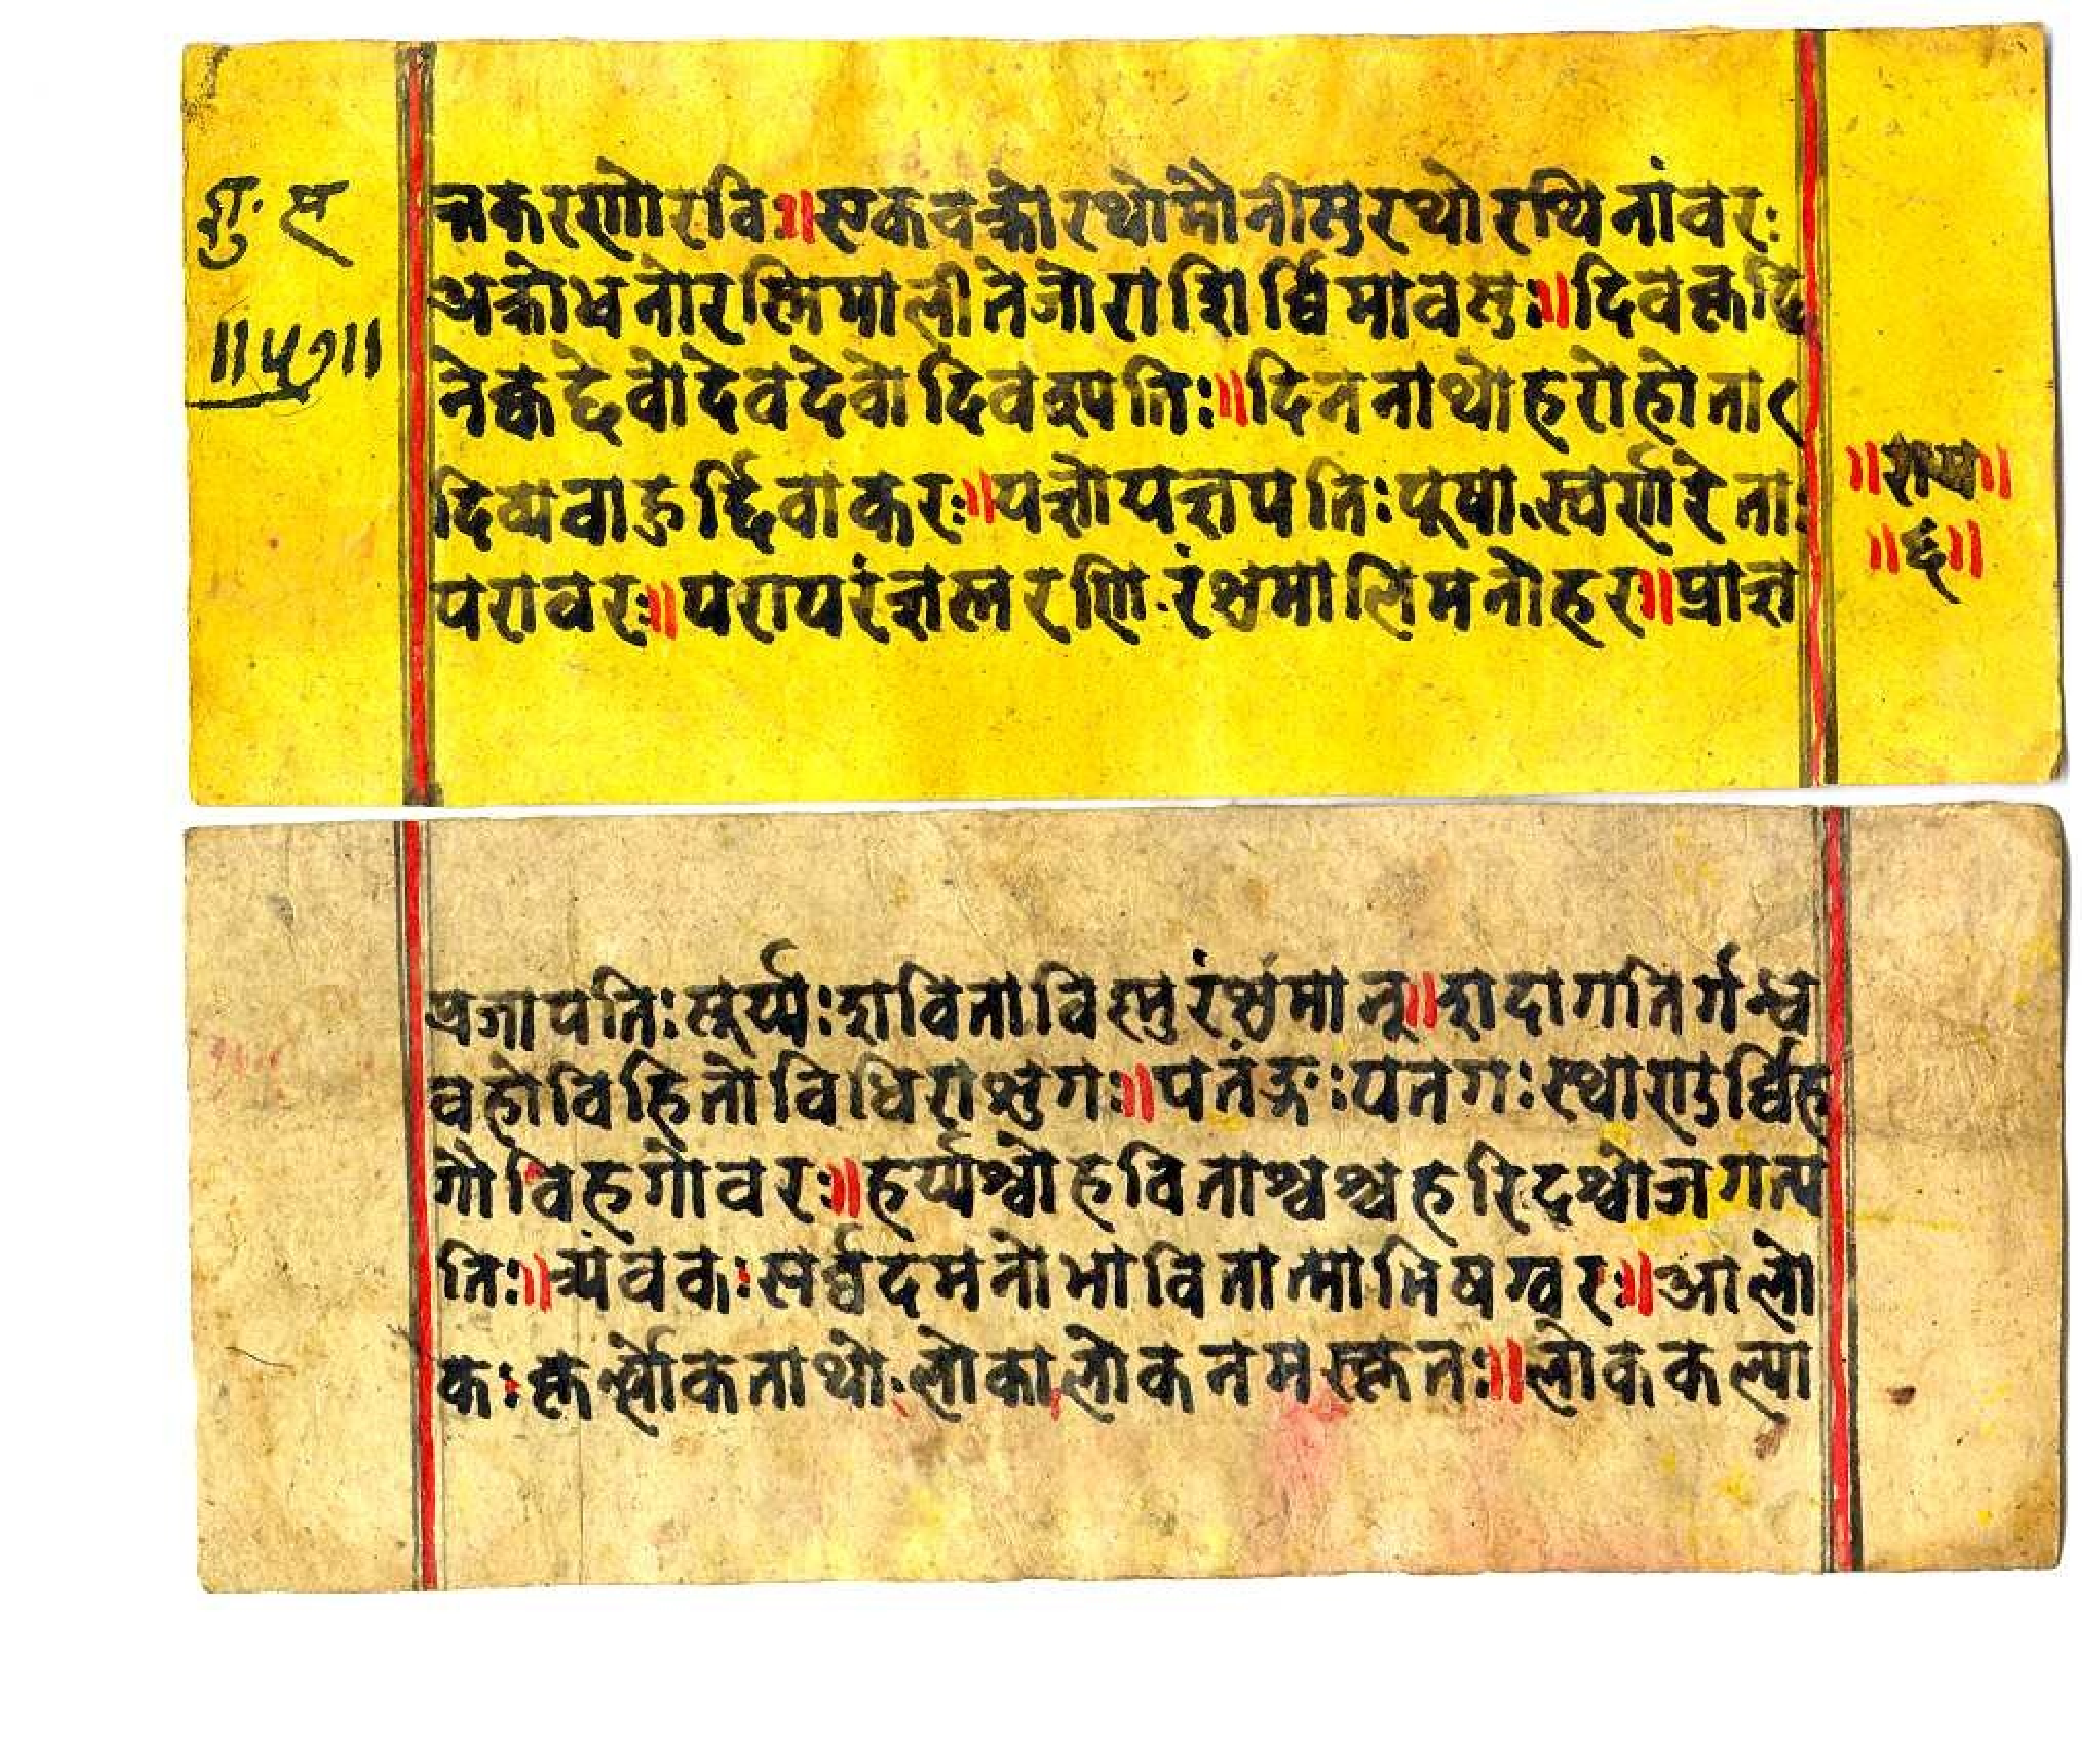 शु· स
॥५७॥
त्रकरणोरविः॥एकचक्रोरथोमौनीसुरथोरथिनांवरः
अक्रोधनोरस्मिमालीतेजोराशिर्व्विभावसुः॥दिवकृद्दि
नेकृद्देवोदेवदेवोदिवस्पतिः॥दिननाथोहरोहोता९
दिव्यवाहुर्द्दिवाकरः॥यज्ञोयज्ञपतिःपूषा.स्वर्णरेताः
परावरः॥परापरंज्ञस्तरणिरंश्रुमालिमनोहर॥प्राज्ञ
॥६॥
प्रजापतिःसूर्य्यःशविताविस्नुरंश्रुमानू॥शदागतिर्गन्ध
वहोविहितोविधिराश्रुगः॥पतंङ्गःपतगःस्थाणुर्व्विह
गोविहगोवरः॥हर्य्यश्वोहविताश्वश्चहरिदश्वोजगत्प
तिः॥त्र्यंवकःसर्व्वदमनोभावितात्माभिषग्वरः॥आलो
कःकृर्ल्लोकनाथो.लोकालोकनमस्कृतः॥लोककल्या